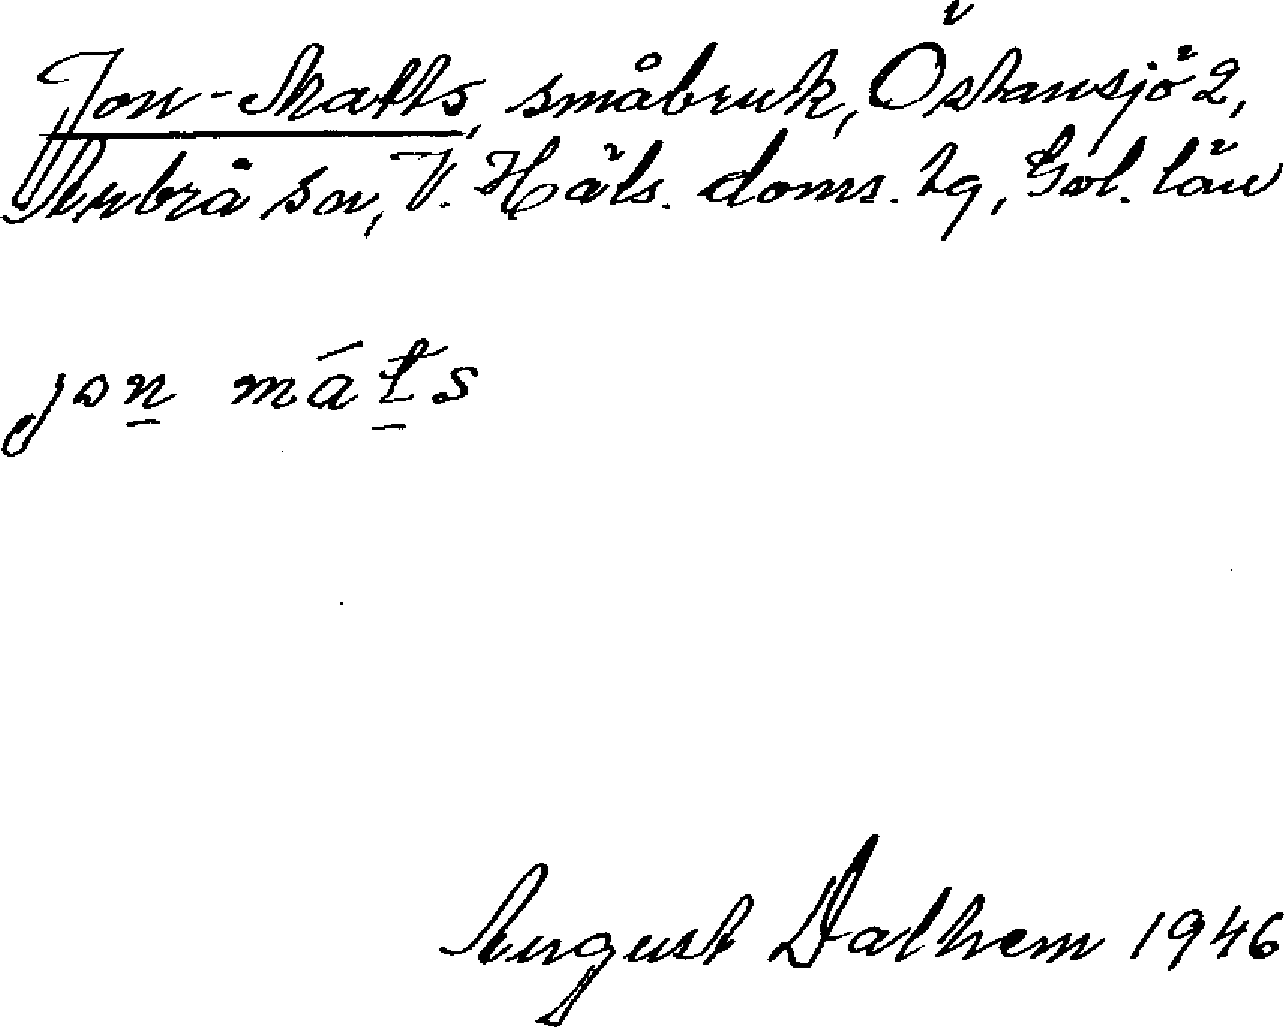 Jon-Matts, småbruk, Östansjö 2,
Arbrå sn, V. Häls. doms. lg, Gvl. län
jon máts
August Dalhem 1946